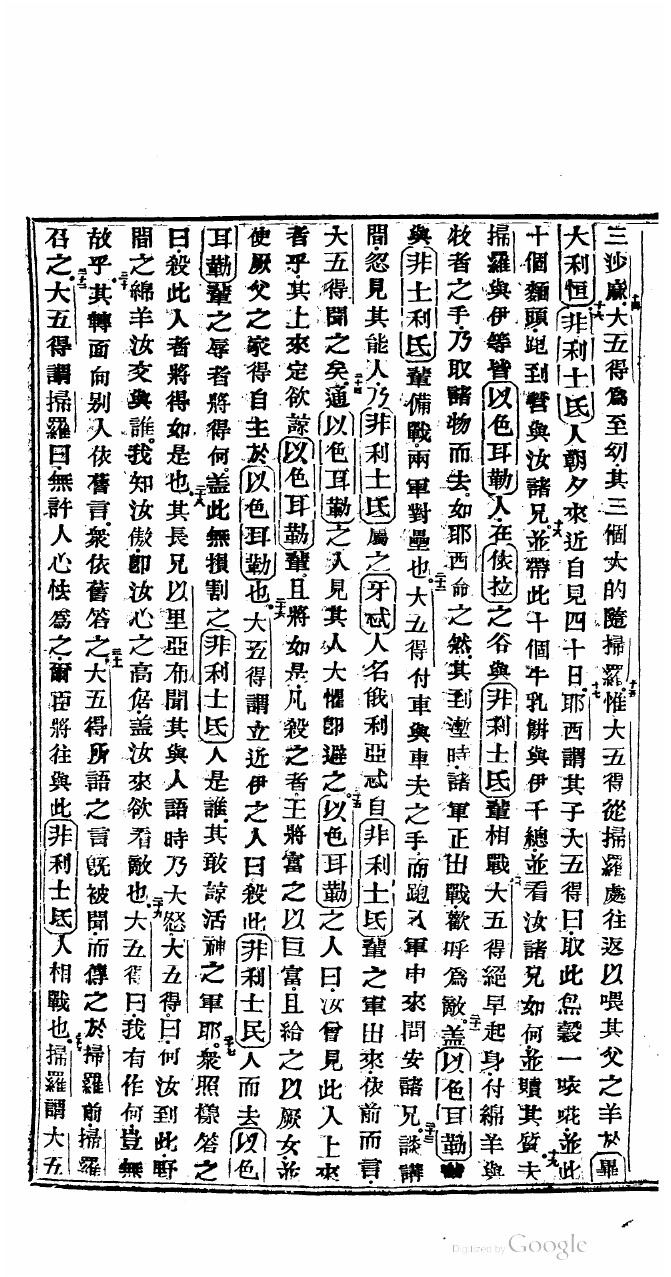 三沙麻大五得爲至幼其三個大的隨掃羅惟大五得從掃羅處往返以喂其父之羊於畢
大利恒非利士氐人朝夕來近自見四十日耶西謂其子大五得曰取此烏穀一唊𠸄並此
十個麵頭跑到營與汝諸兄並帶此十個牛乳餅與伊千總並看汝諸兄如何並贖其質夫
掃羅與伊等皆以色耳勒人在依拉之谷與非利士氐輩相戰大五得絕早起身付綿羊與
牧者之手乃取諸物而去如耶西命之然其到塹時諸軍正出戰歡呼爲敵蓋以色耳勒
與非士利氐輩備戰兩軍對壘也大五得付車與車夫之手而跑入軍中來問安諸兄談講
間忽見其能人乃非利士氐屬之牙忒人名俄利亞忒自非利士氐輩之軍出來依前而言
大五得聞之矣適以色耳勒之人見其人大懼卽避之以色耳勒之人曰汝曾見此人上來
者乎其上來定欲諒以色耳勒輩且將如是凡殺之者王將富之以巨富且給之以厥女並
使厥父之家得自主於以色耳勒也大五得謂立近伊之人曰殺此非利士民人而去以色
耳勒輩之辱者將得何蓋此無損割之非利士氐人是誰其敢諒活神之軍耶衆照樣答之
曰殺此人者將得如是也其長兄以里亞布聞其與人語時乃大怒大五得曰何汝到此野
間之綿羊汝交與誰我知汝傲卽汝心之高倨蓋汝來欲看敵也大五得曰我有作何豈無
故乎其轉面向别人依舊言衆依舊答之大五得所語之言旣被聞而傳之於掃羅前掃羅
召之大五得謂掃羅曰無許人心怯爲之爾臣將往與此非利士氐人相戰也掃羅謂大五
Digitized by Google